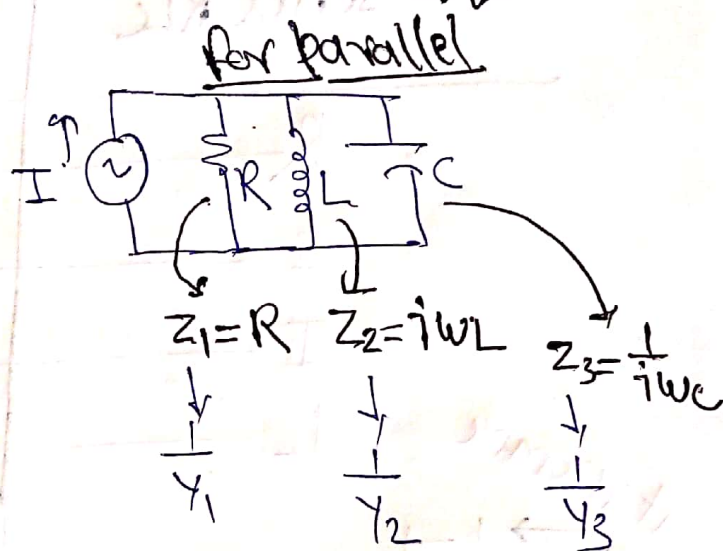 for parallel
I R L C
Z₁=R Z₂=iωL Z₃=1/iωc
1/Y₁ 1/Y₂ 1/Y₃